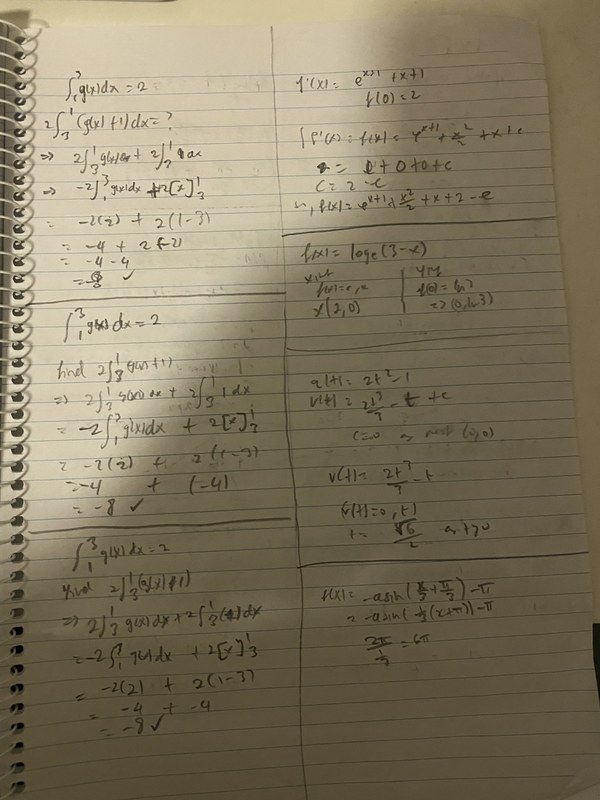 ∫₁³ g(x)dx = 2
2∫₃¹ (g(x)+1)dx = ?
⇒ 2∫₃¹ g(x)dx + 2∫₃¹ 1 dx
⇒ -2∫₁³ g(x)dx + 2[x]₃¹
= -2(2) + 2(1-3)
= -4 + 2(-2)
= -4 - 4
= -8 ✓
∫₁³ g(x)dx = 2
find 2∫₃¹ (g(x)+1)
⇒ 2∫₃¹ g(x)dx + 2∫₃¹ 1 dx
= -2∫₁³ g(x)dx + 2[x]₃¹
= -2(2) + 2(1-3)
= -4 + (-4)
= -8 ✓
∫₁³ g(x)dx = 2
find 2∫₃¹ (g(x)+1)
⇒ 2∫₃¹ g(x)dx + 2∫₃¹ dx
= -2∫₁³ g(x)dx + 2[x]₃¹
= -2(2) + 2(1-3)
= -4 + -4
= -8 ✓
f'(x) = e^(x+1) + x + 1
f(0) = 2
∫f'(x) = f(x) = e^(x+1) + x²/2 + x + c
= e + 0 + 0 + c
c = 2 - e
f(x) = e^(x+1) + x²/2 + x + 2 - e
f(x) = logₑ(3-x)
x int
y int
f(0) =
x(2,0)
a(t) = 2t² - 1
v(t) = 2t³/3 - t + c
c = 0
(0,0)
v(t) = 2t³/3 - t
v(t) = 0,
t = √6/2
t > 0
f(x) = -a sin(x/3 + π/3) - π
= -a sin(1/3(x+π)) - π
2π/(1/3) = 6π